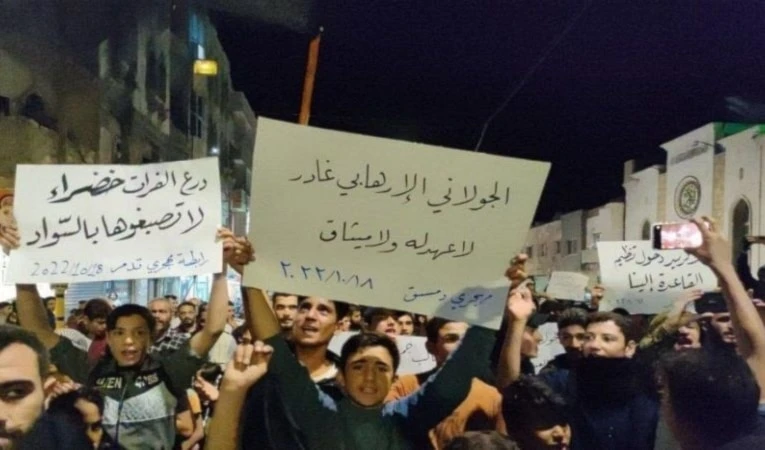 درع الفرات خضراء
لا تصبغوها بالسّواد
رابطة مهجري تدمر 2022/10/18
الجولاني الإرهابي غادر
لا عهد له ولا ميثاق
٢٠٢٢/١٠/١٨
مهجري دمشق
نريد دخول تنظيم
القاعدة إلينا